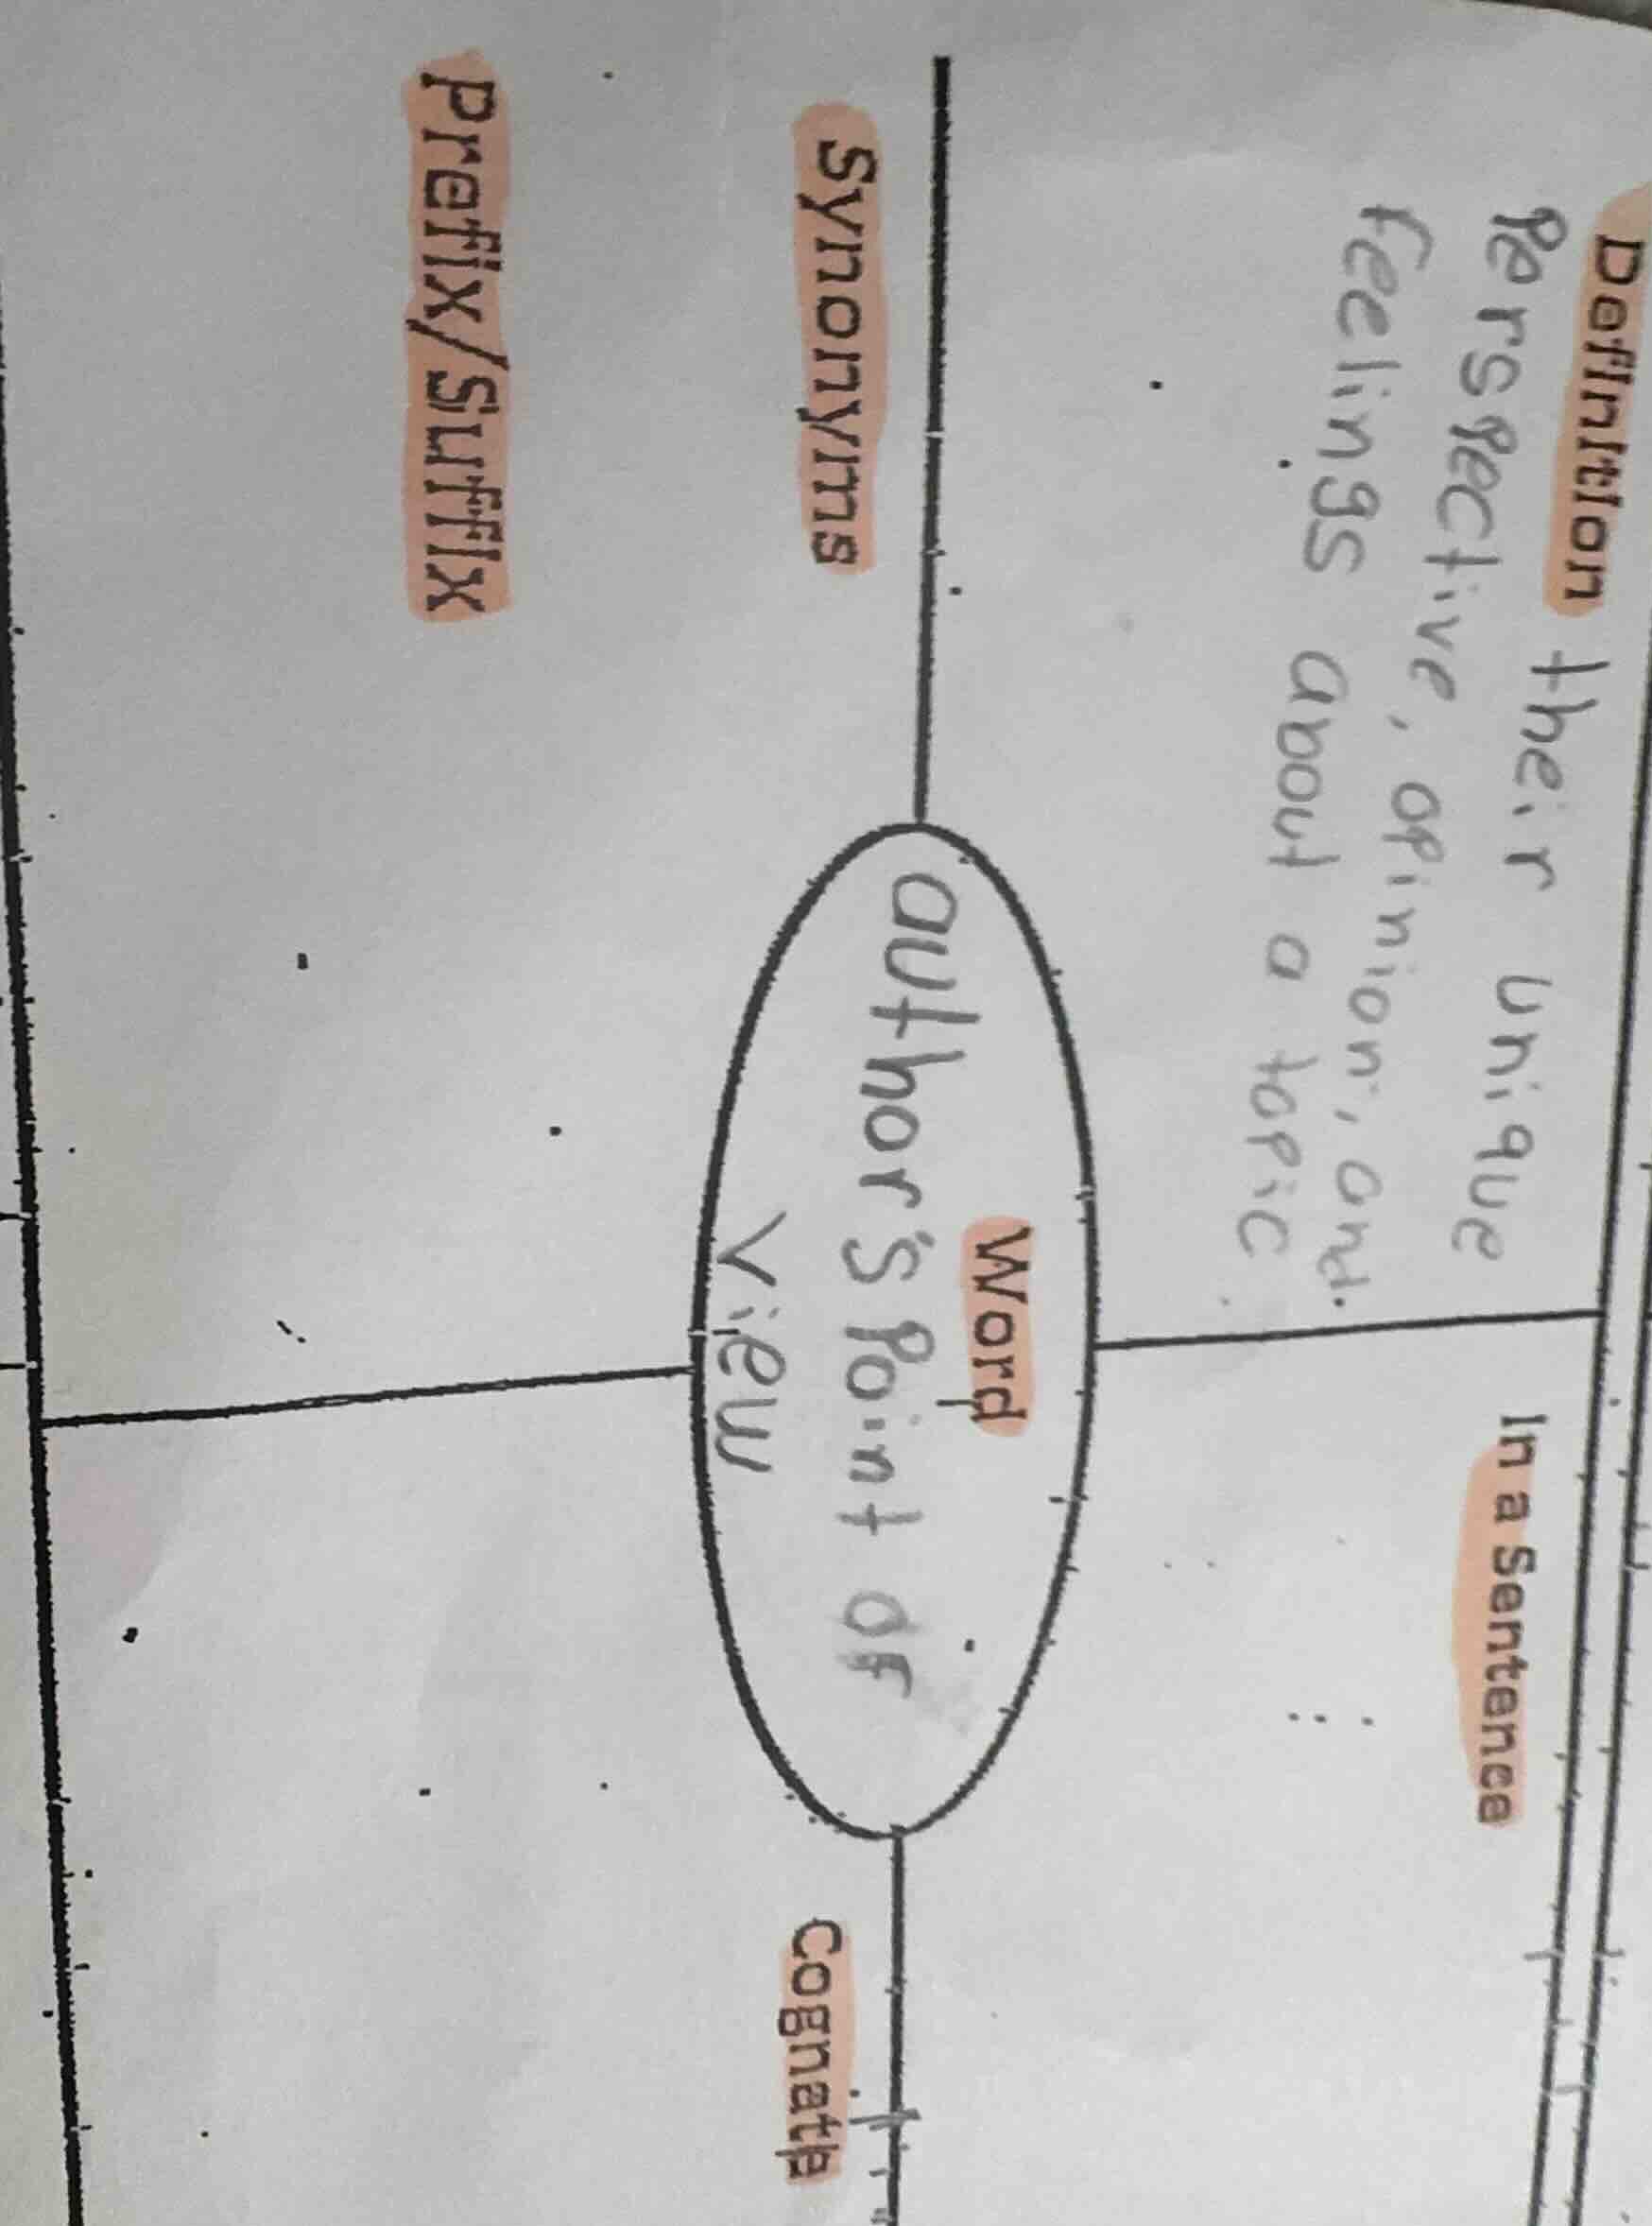 Definition their unique
perspective, opinion, and
feelings about a topic.
In a Sentence
Word
author's point of
view
Synonyms
Prefix/Suffix
Cognate